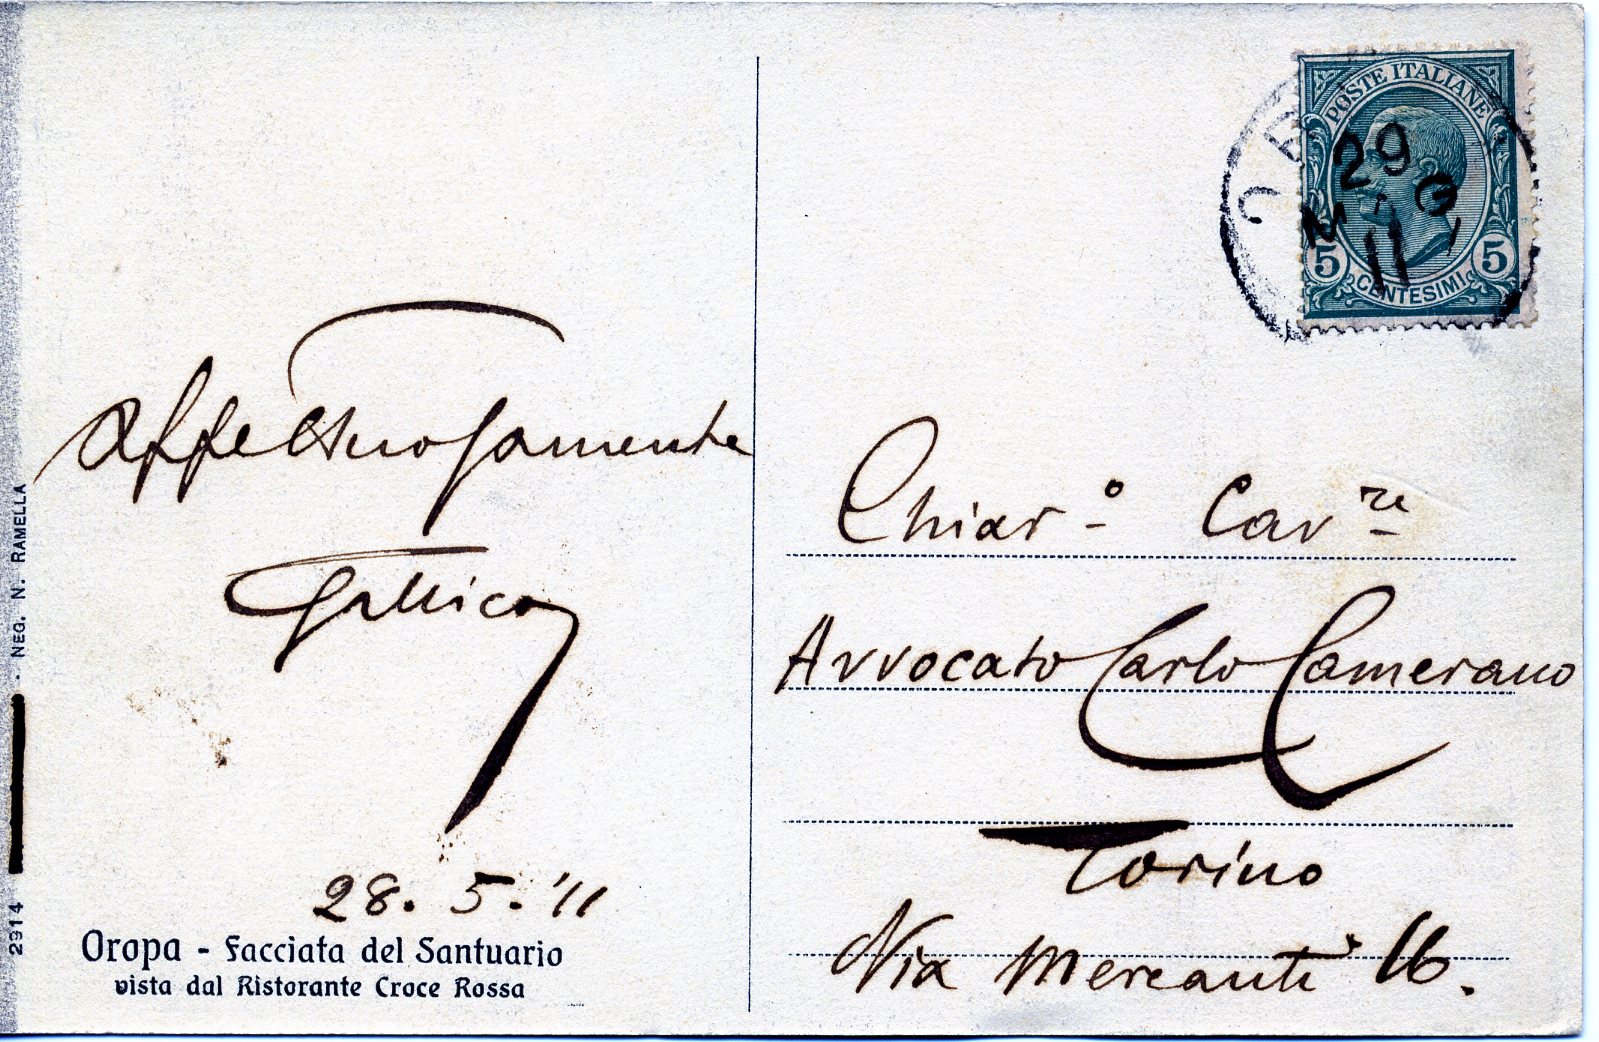 POSTE ITALIANE
29
MAG
11
5 5
CENTESIMI
Affettuosamente
Gallico
28. 5. '11
Oropa - Facciata del Santuario
vista dal Ristorante Croce Rossa
2914
NEG. N. RAMELLA
Chiar.º Cav.re
Avvocato Carlo Camerano
Torino
Via Mercanti 16.